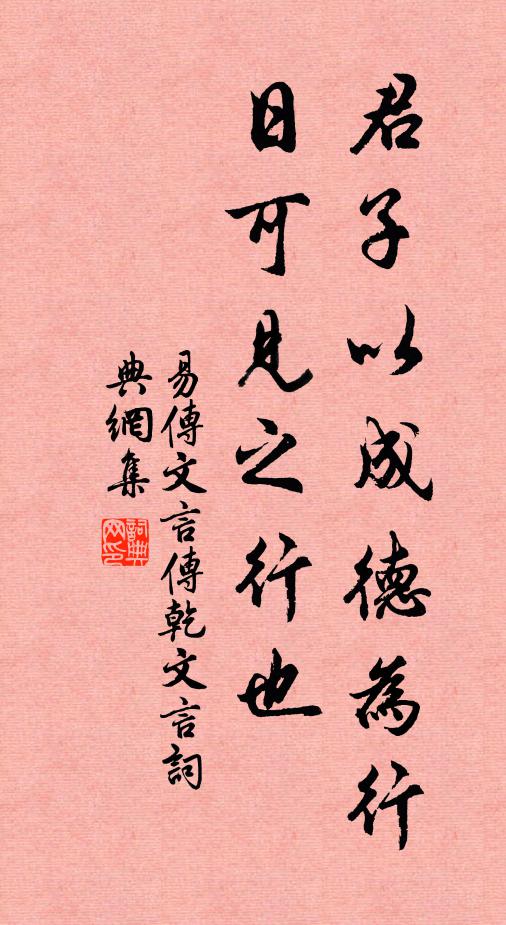 君子以成德為行
日可見之行也
易傳文言傳乾文言詞
典網集
詞典網印